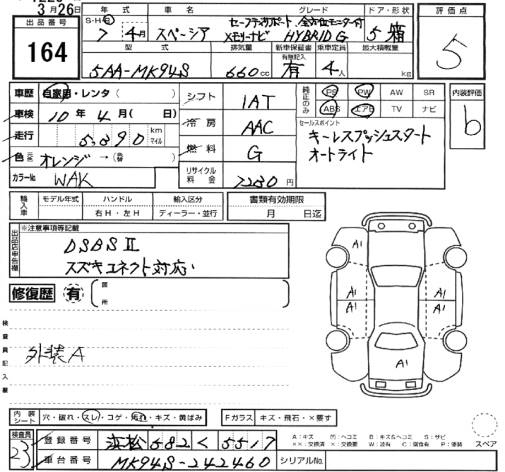 3月26日
出品番号
164
年式 車名 グレード ドア・形状
S・H・R 7年 4月 スペーシア セーフティサポート 全方位モニター付 メモリーナビ HYBRID G 5 箱
評価点
5
型式 排気量 新車保証書 乗車定員 最大積載量
有無記入
5AA-MK94S 660cc 有 4人 kg
車歴 自家用・レンタ( )
車検 10年 4月( 日)
走行 5,890 km マイル
色 元色 オレンジ→(替 )
カラーNo. WAK
シフト IAT
冷房 AAC
燃料 G
リサイクル料金 7280円
純正のみ PS PW AW SR
ABS エアB TV ナビ
セールスポイント
キーレスプッシュスタート
オートライト
内装評価
b
輸入車 モデル年式 ハンドル 輸入区分 書類有効期限
右H・左H ディーラー・並行 月 日迄
出品店申告欄
※注意事項等記載
DSBS II
スズキコネクト対応
修復歴 有 箇所
検査員記入欄
外装A
A1
A1 A1
A1 A1
A1
内装シート 穴・破れ・スレ・コゲ・汚れ・キズ・黄ばみ Fガラス キズ・飛石・×要す
検査員 23
登録番号 浜松 582 く 55-7
車台番号 MK94S-242460 シリアルNo.
A:キズ M:ヘコミ B:キズ&ヘコミ S:サビ
××:交換済 ×:交換要 W:波 C:腐食 P:塗装
スペア